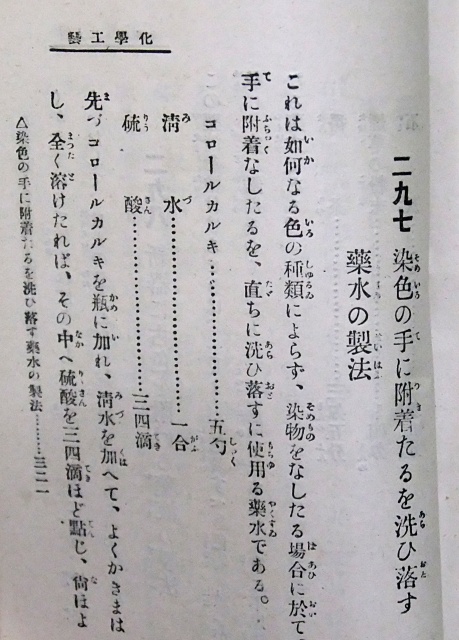 化學工藝
二九七 染色の手に附着たるを洗ひ落す
藥水の製法
これは如何なる色の種類によらず、染物をなしたる場合に於て、
手に附着なしたるを、直ちに洗ひ落すに使用る藥水である。
コロールカルキ……………………五勺
淸水……………………一合
硫酸……………………三四滴
先づコロールカルキを瓶に加れ、淸水を加へて、よくかきまは
し、全く溶けたれば、その中へ硫酸を三四滴ほど點じ、尙ほよ
△染色の手に附着たるを洗ひ落す藥水の製法………三二一